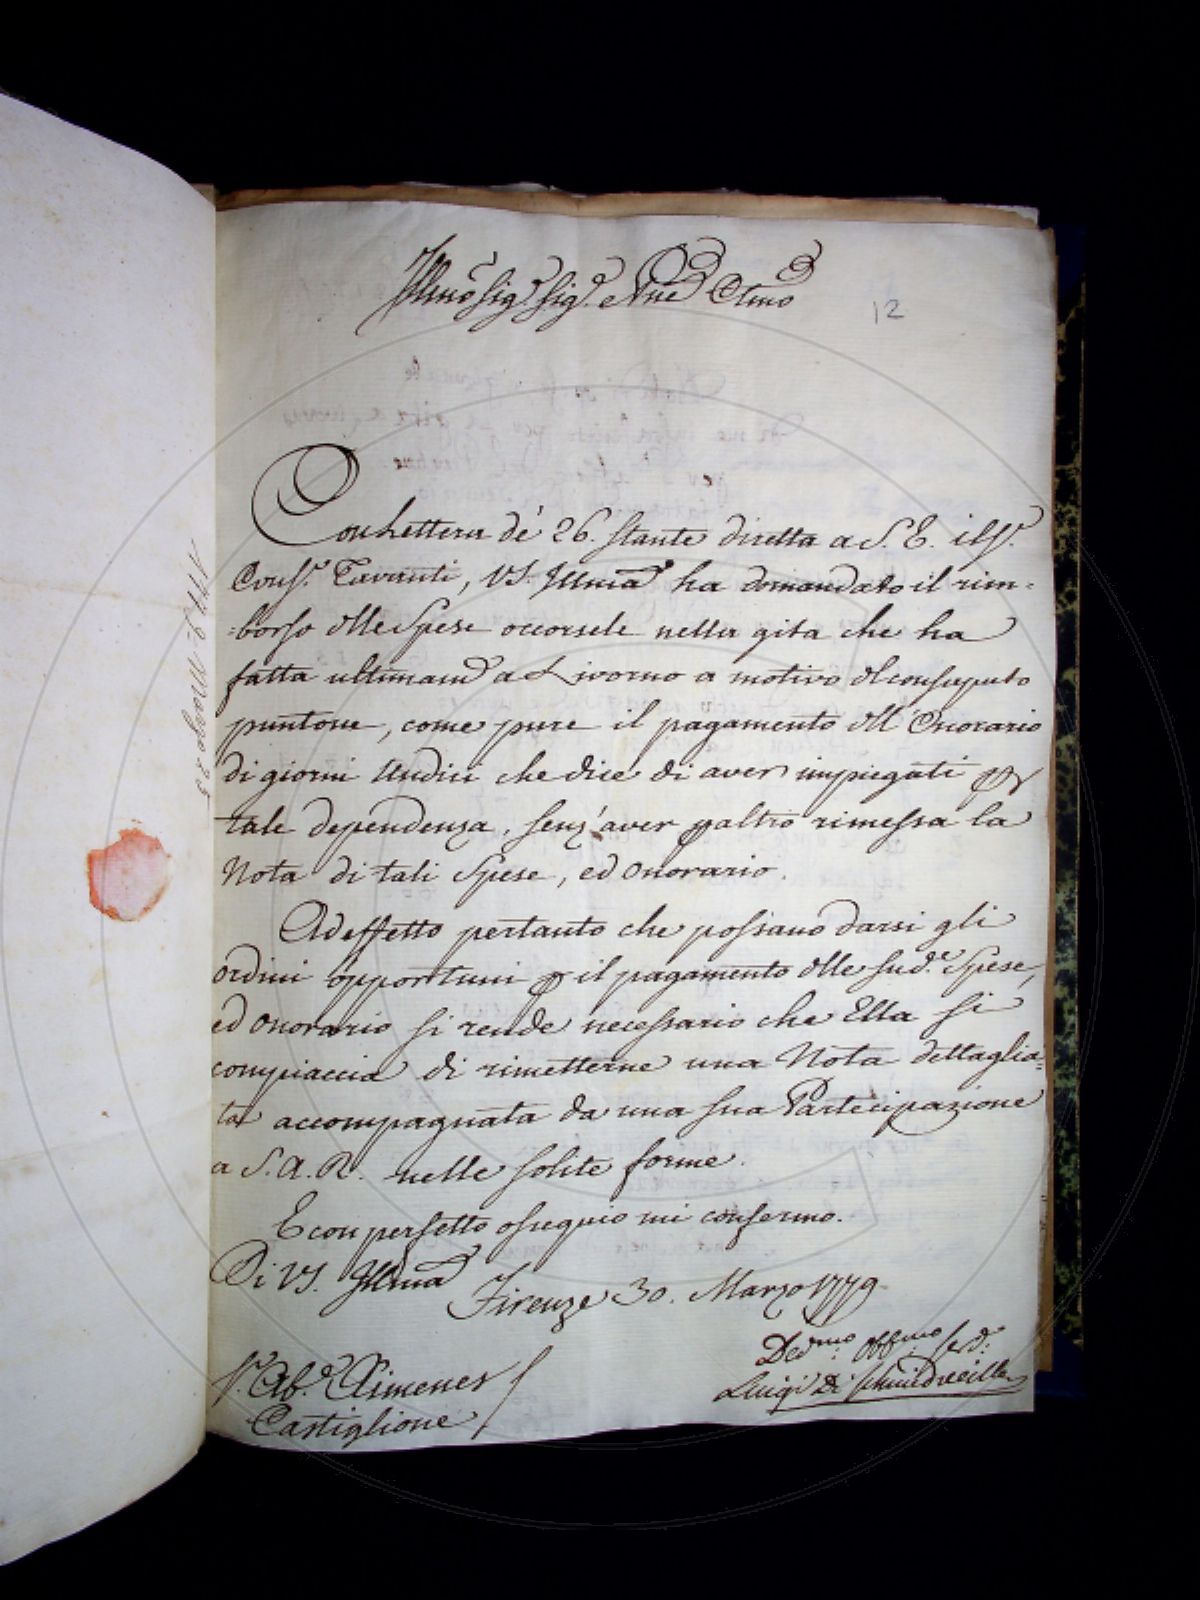 Illmo Sig.r Sig.r e Pne Clmo
12
Con Lettera de' 26. Stante diretta a S. E. il S.r
Cons.r Tavanti, VS. Illma ha domandato il rim=
=borso delle Spese occorsele nella gita che ha
fatta ultimam.te a Livorno a motivo del consaputo
puntone, come pure il pagamento dell'Onorario
di giorni Undici che dice di aver impiegati per
tale dependenza, senz'aver p altro rimessa la
Nota di tali Spese, ed onorario.
Ad effetto pertanto che possano darsi gli
ordini opportuni p il pagamento delle sud.e Spese,
ed onorario si rende necessario che Ella si
compiaccia di rimetterne una Nota dettaglia=
ta accompagnata da una sua Partecipazione
a S. A. R. nelle solite forme.
E con perfetto ossequio mi confermo.
Di VS. Illma
Firenze 30. Marzo 1779
Dev.mo Obb.mo Ser.
Luigi Di
S.r Ab.e Ximenes
Castiglione